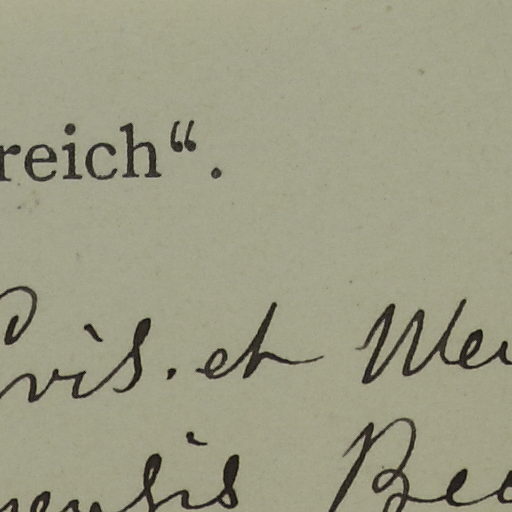 reich“.
Cris. et Mer
nensis Bec